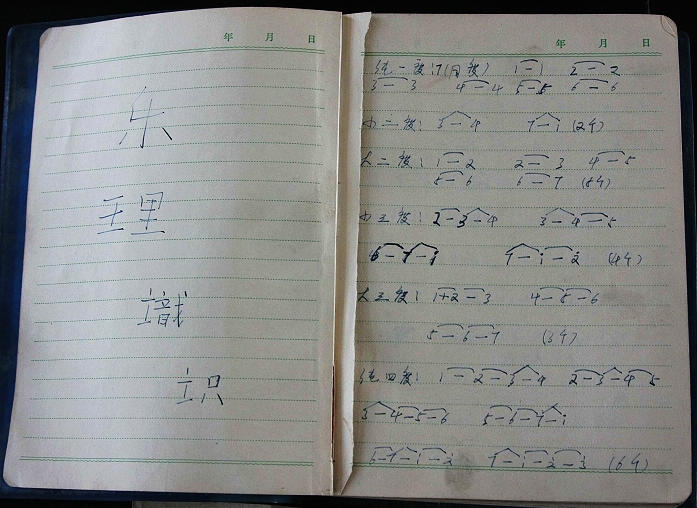 年 月 日
乐
理
識
识
年 月 日
纯一度:7(同度) 1—1 2—2
3—3 4—4 5—5 6—6
小二度: 3—4 7—i (2个)
大二度: 1—2 2—3 4—5
5—6 6—7 (5个)
小三度: 2—3—4 3—4—5
6—7—i 7—i—2 (4个)
大三度: 1—2—3 4—5—6
5—6—7 (3个)
纯四度: 1—2—3—4 2—3—4—5
3—4—5—6 5—6—7—i
6—7—i—2 7—i—2—3 (6个)